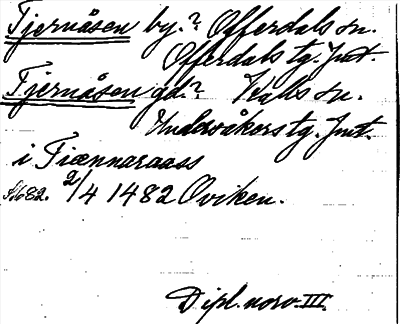 Tjernåsen by.? Offerdals sn.
Offerdals tg. Jmt.
Tjernåsen gd.? Kalls sn.
Undersåkers tg. Jmt.
i Tiænnaraass
S. 682. 2/4 1482 Oviken.
Dipl. norv. III.